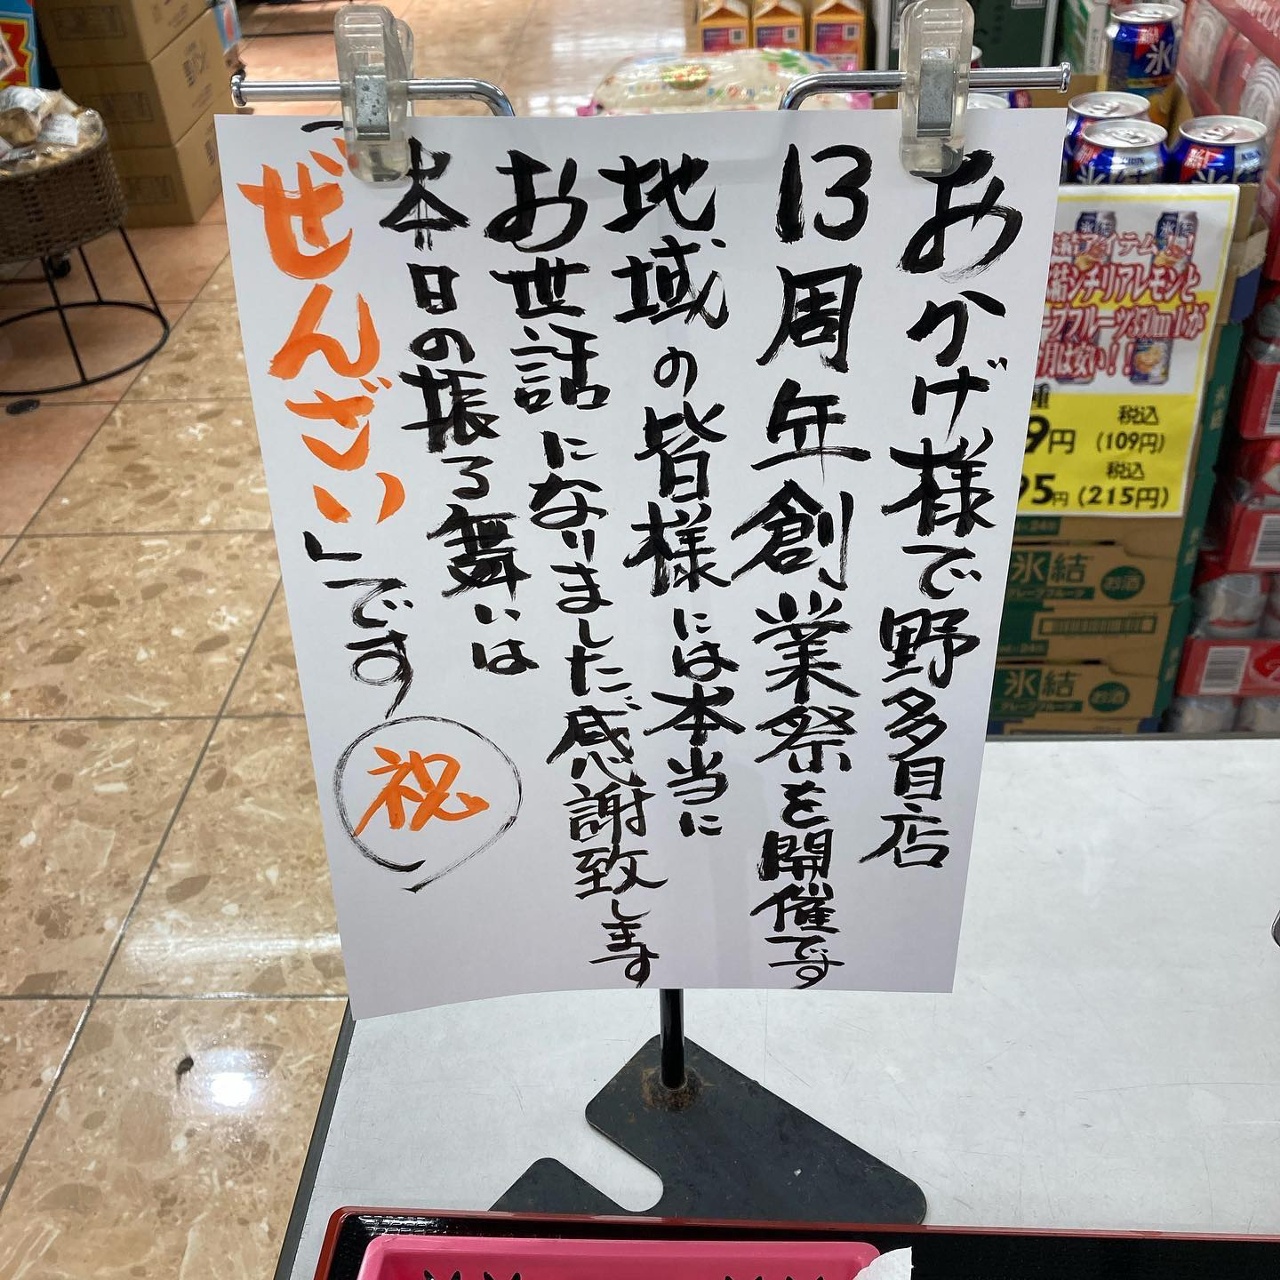 おかげ様で野多目店
13周年創業祭を開催です
地域の皆様には本当に
お世話になりました。感謝致します
本日の振る舞いは
「ぜんざい」です
祝
結アイテム!!
結シチリアレモンと
プフルーツ350mlが
月は安い!!
種
9円
税込
(109円)
95円
税込
(215円)
氷結
グレープフルーツ
お酒
氷結
グレープフルーツ
お酒